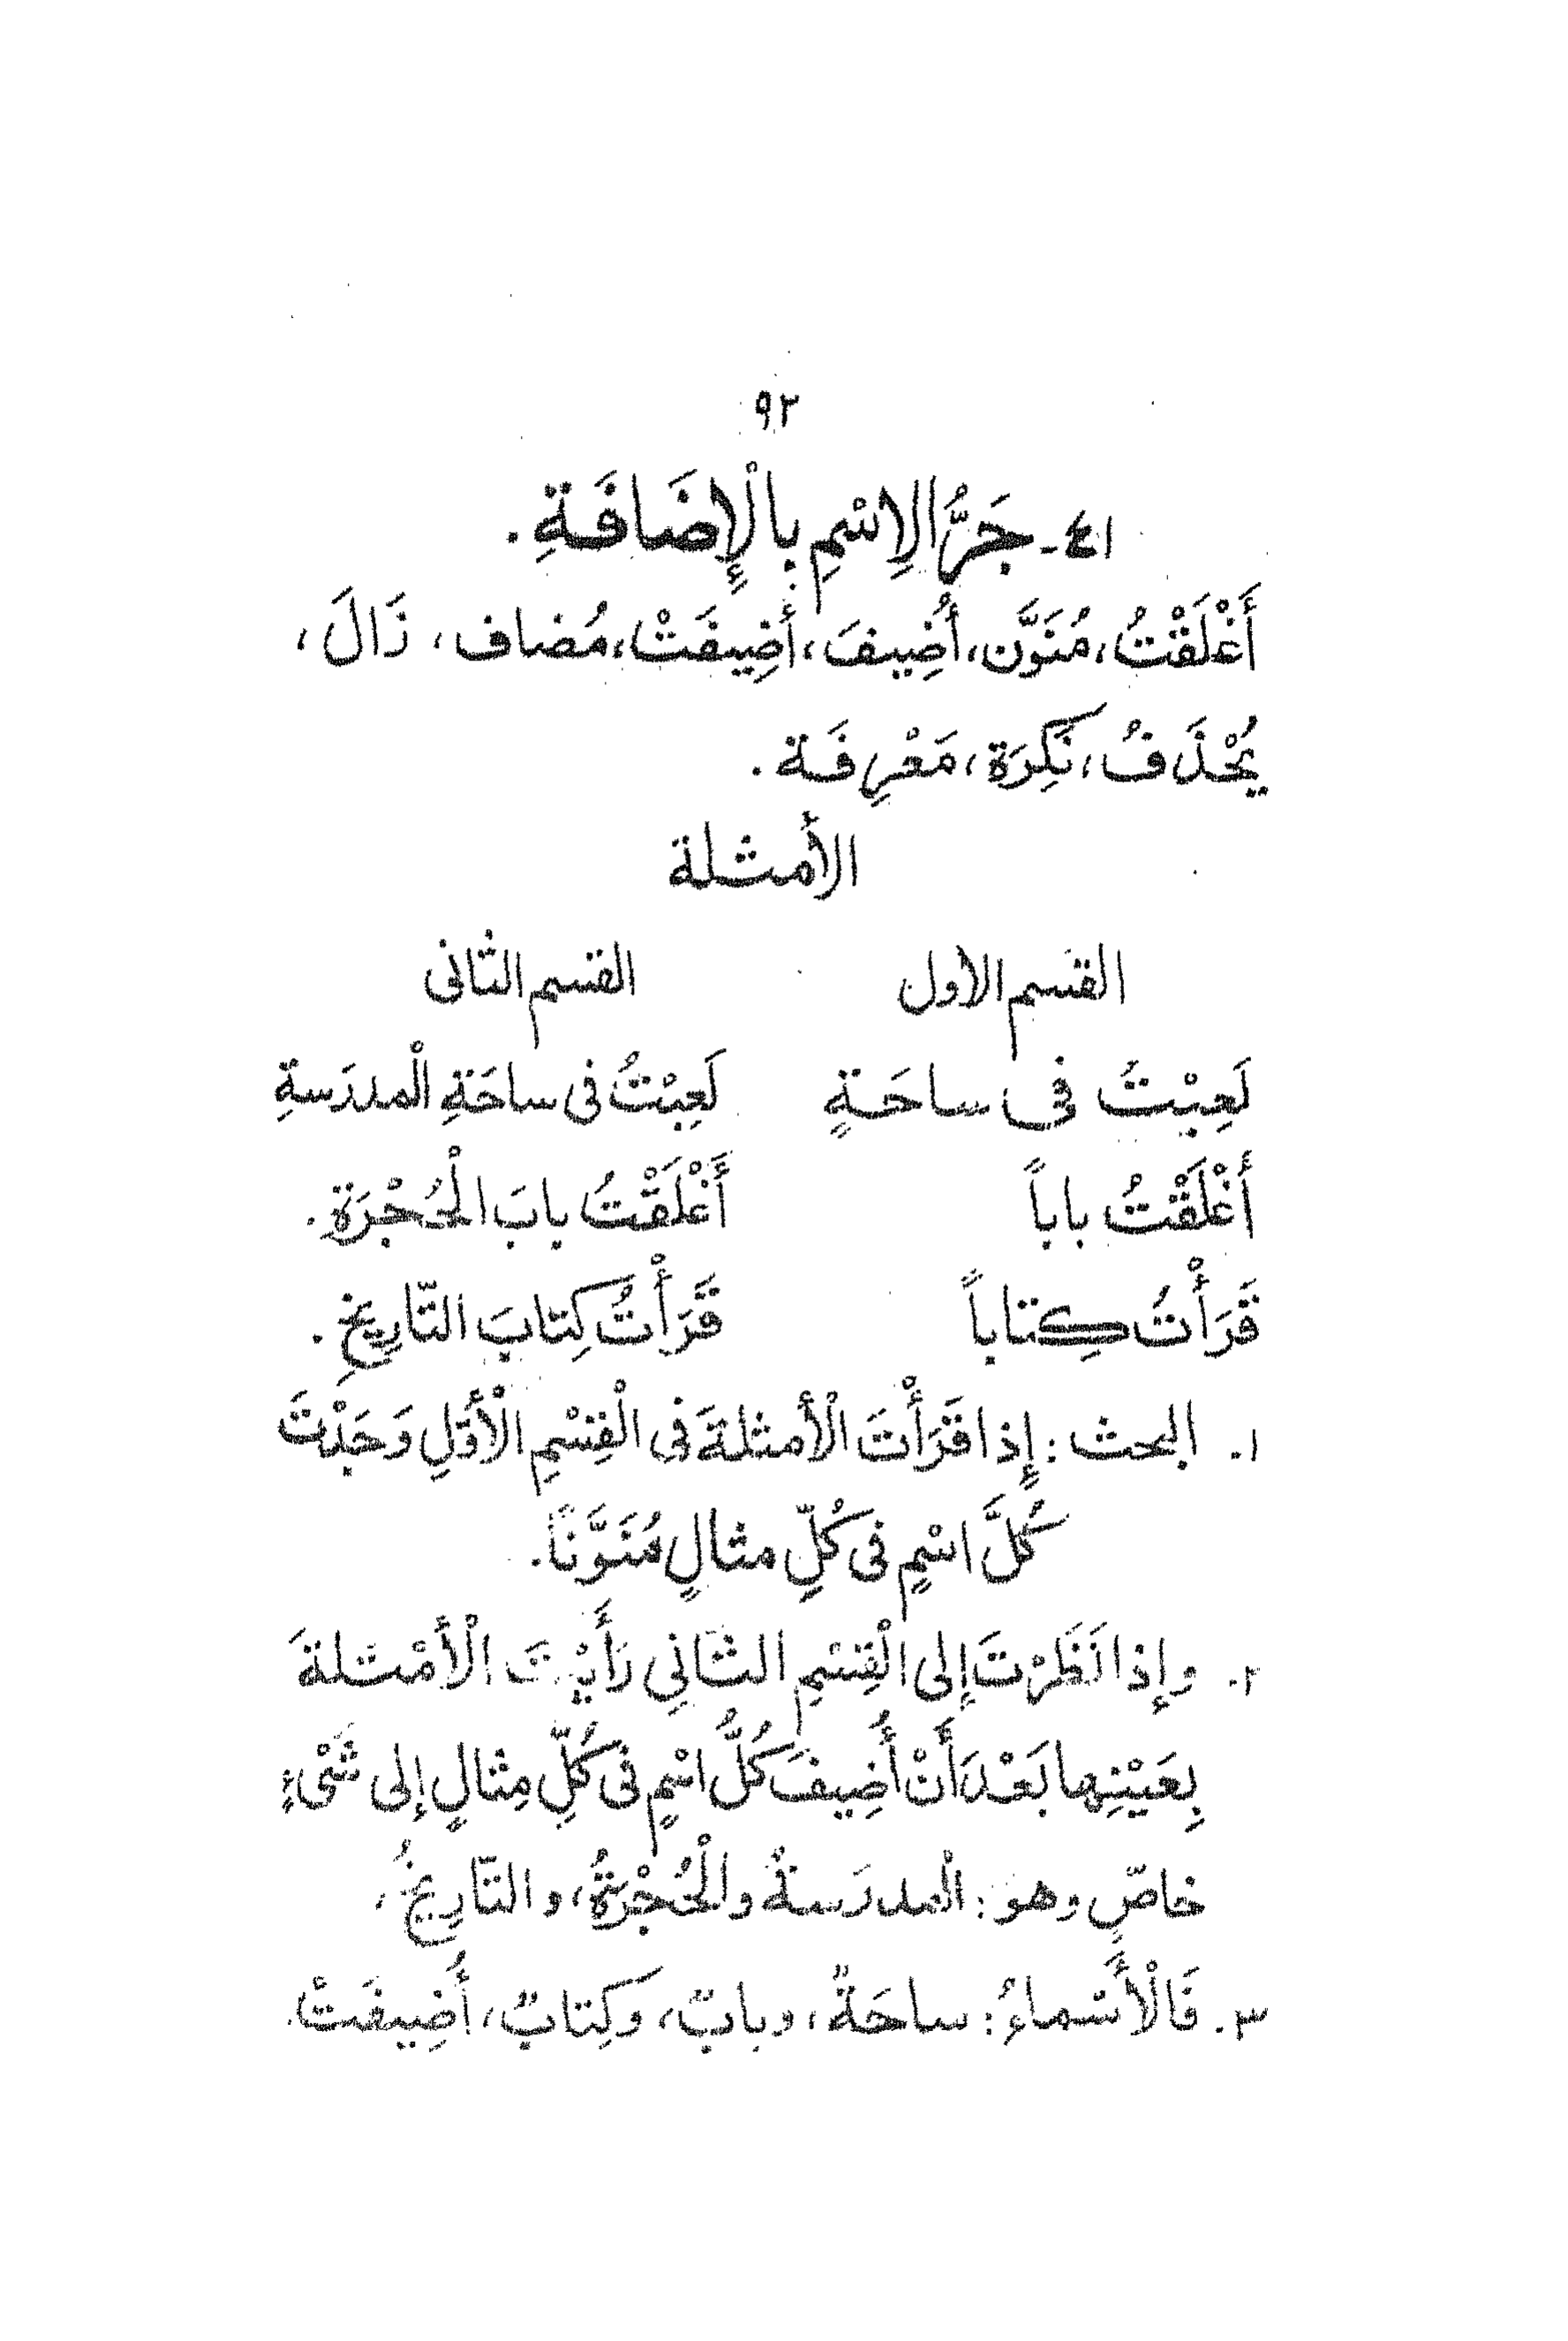 ٩٢
٤١- جَرُّ الِاسْمِ بالْإِضَافَةِ .
أَغْلَقْتُ، مُنَوَّن، أُضِيفَ، أُضِيفَتْ، مُضاف، زَالَ،
يُحْذَفُ، نَكِرَة، مَعْرِفَة .
الأمثلة
القسم الأول القسم الثانى
لَعِبْتُ فى ساحَةٍ لَعِبْتُ فى ساحَةِ الْمدرَسةِ
أَغْلَقْتُ باباً أَغْلَقْتُ بابَ الْحُجْرَةِ .
قَرَأْتُ كِتاباً قَرَأْتُ كِتابَ التّارِيخِ .
١. البحث : إِذا قَرَأْتَ الْأمثلةَ فى الْقِسْمِ الْأَوّلِ وَجَدْتَ
كُلَّ اسْمٍ فى كُلِّ مثالٍ مُنَوَّنًا.
٢. وإِذا نَظَرْتَ إِلى الْقِسْمِ الثَّانِي رَأَيْتَ الْأَمْثلةَ
بِعَيْنِها بَعْدَ أَنْ أُضِيفَ كُلُّ اسْمٍ فى كُلِّ مِثالٍ إِلى شَىْءٍ
خاصّ وهو : الْمدرَسةُ والْحُجْرَةُ، والتّارِيخُ،
٣. فَالْأَسْماءُ : ساحَةٌ، وبابٌ، وَكِتابٌ، أُضِيفَتْ.